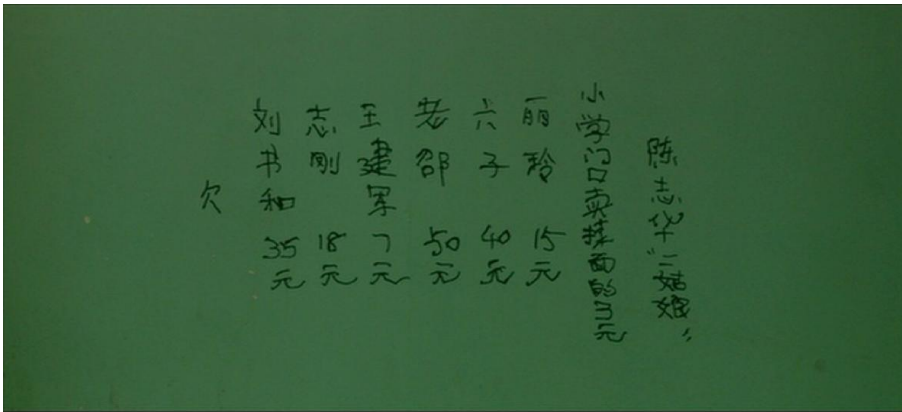 陈志华“二姑娘”
小学门口卖挂面的3元
丽玲 15元
六子 40元
老邵 50元
王建军 7元
志刚 18元
刘书和 35元
欠